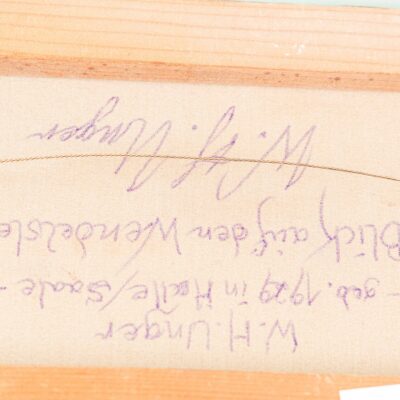 W.H. Unger
- geb. 1929 in Halle/Saale -
Blick auf den Wendelste
W. H. Unger